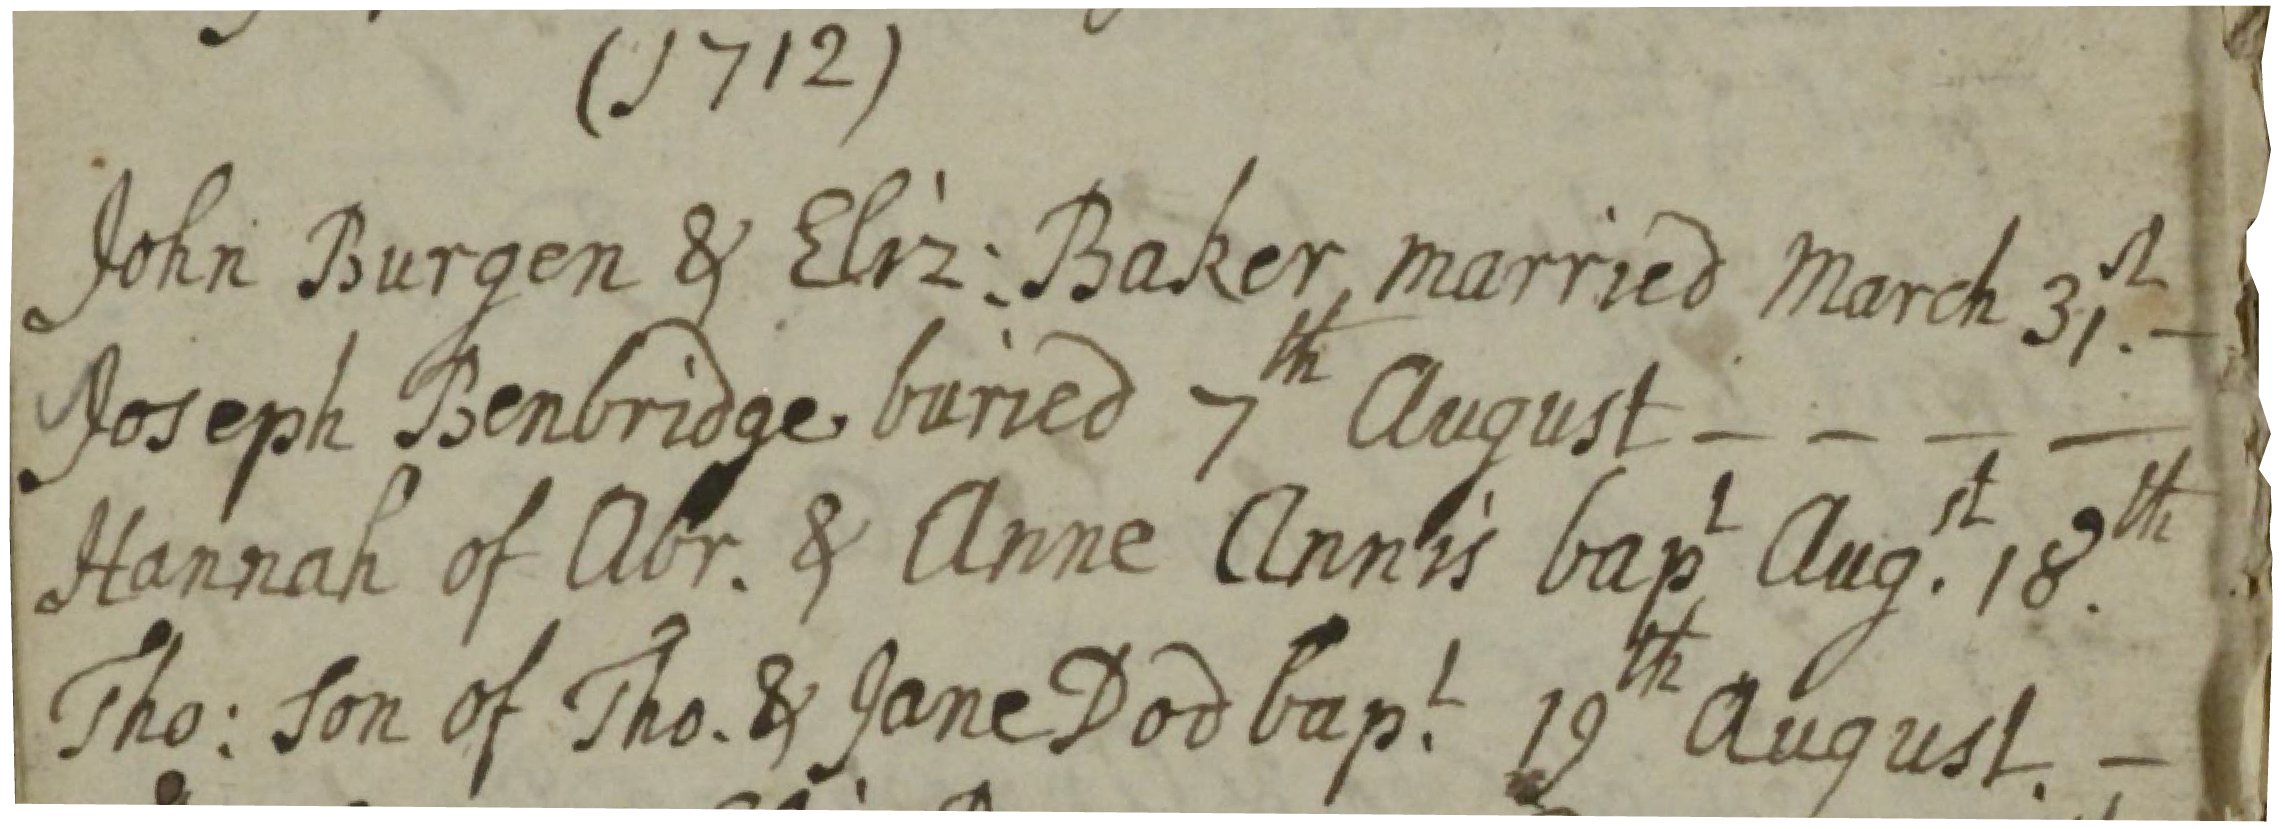 (1712)
John Burgen & Eliz: Baker married March 31.st –
Joseph Benbridge buried 7th August – – – –
Hannah of Abr. & Anne Annis bapt Aug.st 18.th
Tho: son of Tho. & Jane Dod bap.t 19th August. –